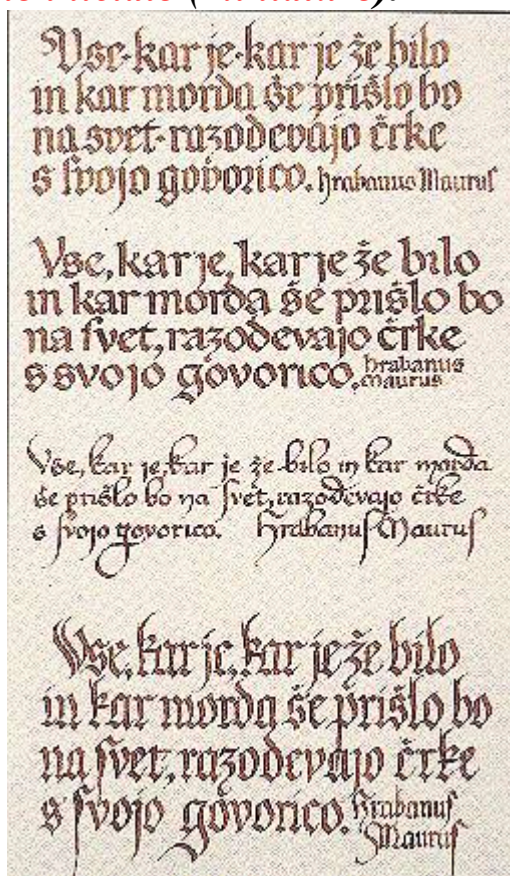 Vse·kar je·kar je že bilo
in kar morda še prišlo bo
na svet·razodevajo črke
s svojo govorico. Hrabanus Maurus
Vse, kar je, kar je že bilo
in kar morda še prišlo bo
na svet, razodevajo črke
s svojo govorico. Hrabanus
Maurus
Vse, kar je, kar je že bilo in kar morda
še prišlo bo na svet, razodevajo črke
s svojo govorico. Hrabanus Maurus
Vse, kar je, kar je že bilo
in kar morda še prišlo bo
na svet, razodevajo črke
s svojo govorico. Hrabanus
Maurus